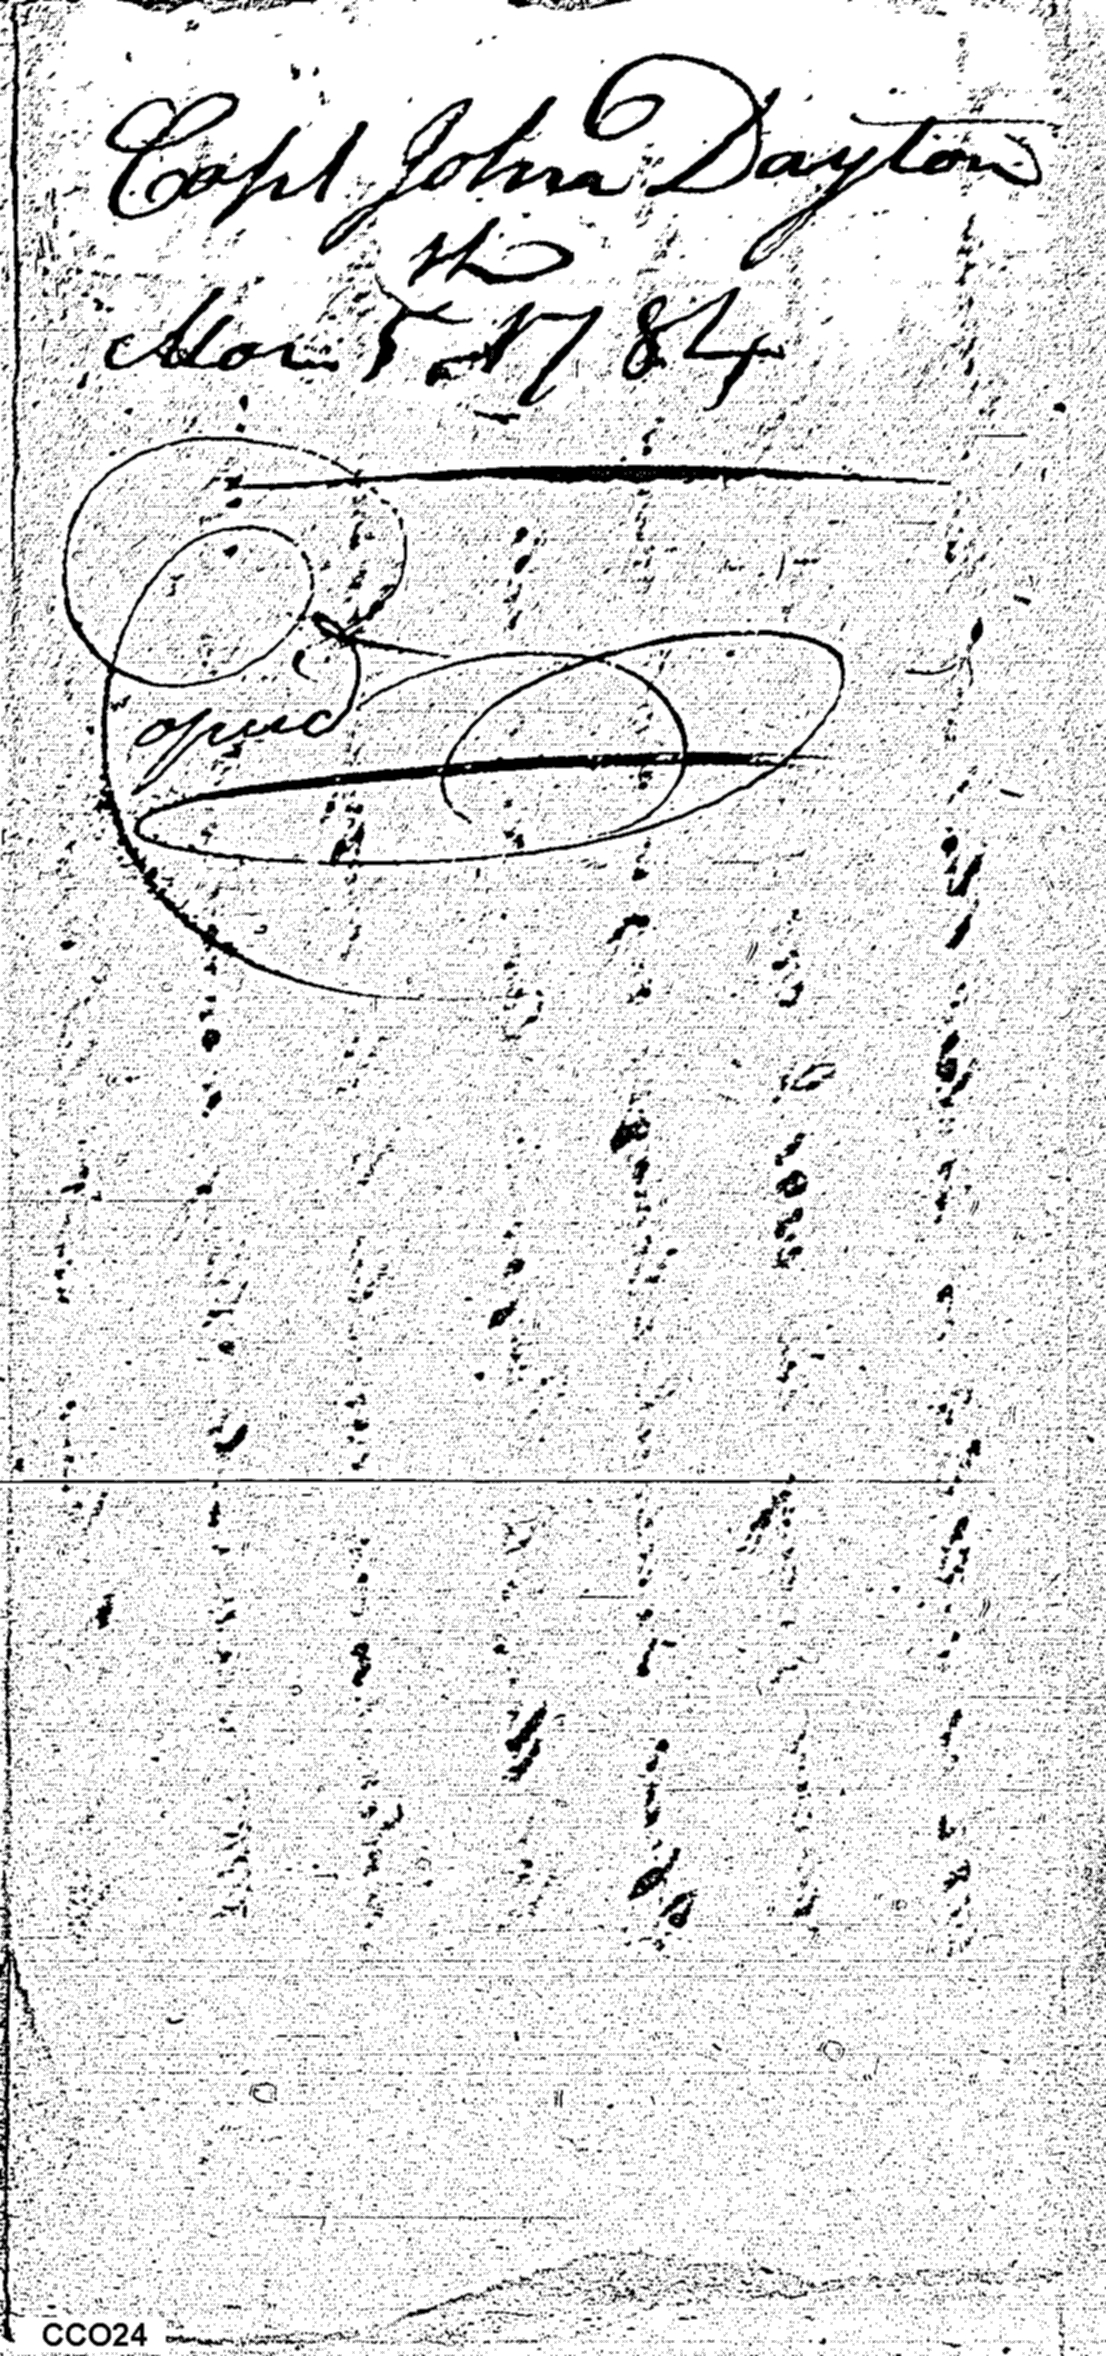 Capt John Dayton
th
Mar 5 1784
Copied
CCO24